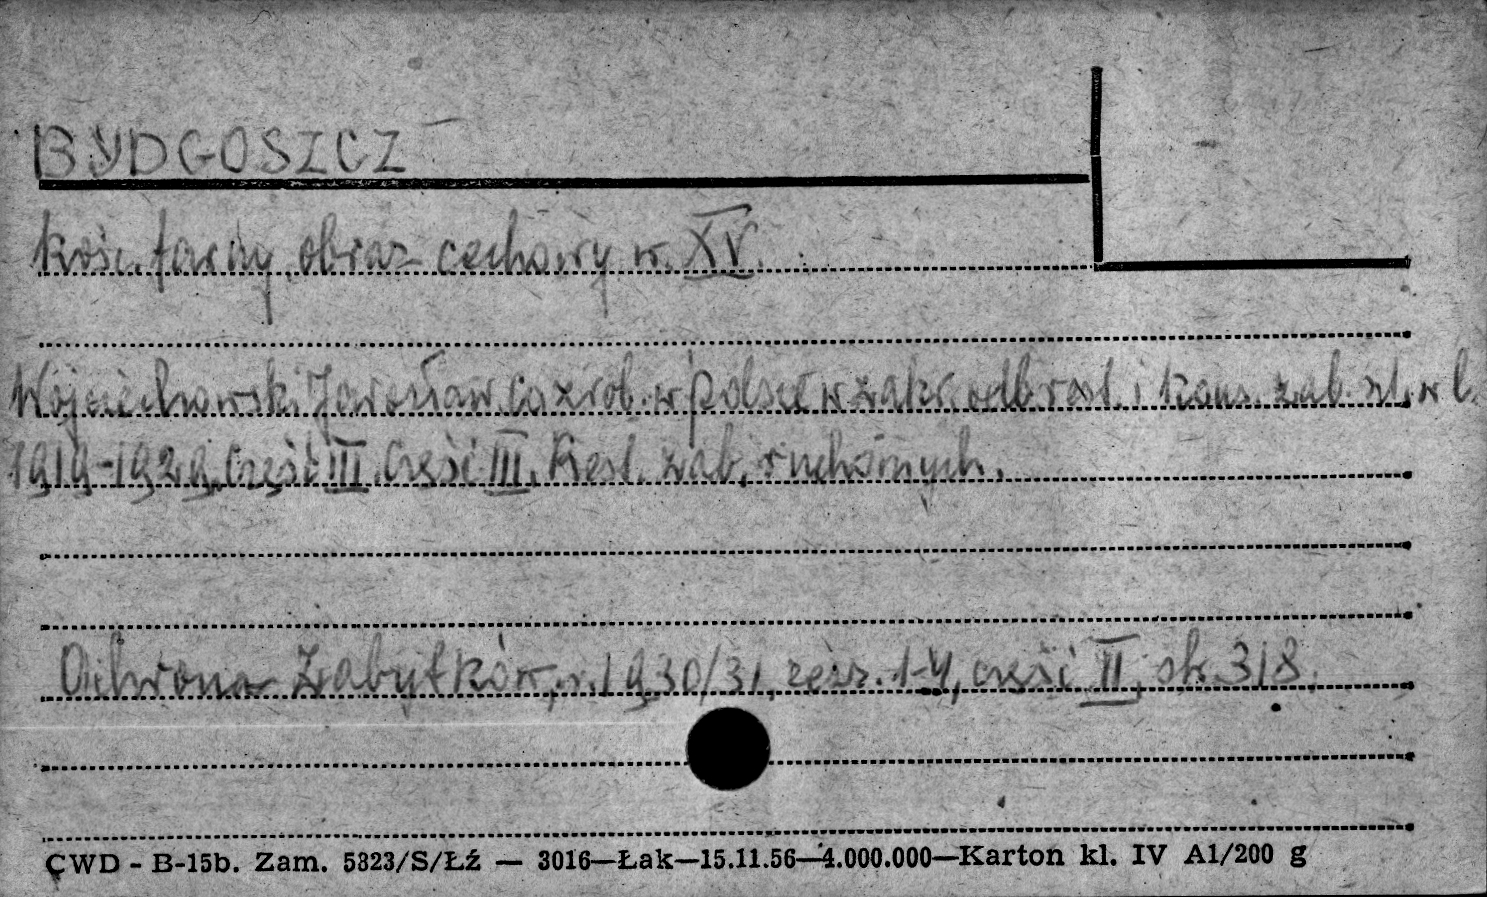 BYDGOSZCZ
kośc. farny, obraz cechowy w. XV.
Wojciechowski Jarosław, Co zrob. w Polsce w zakr. odb. rest. i kons. zab. szt. w l.
1919-1929, Część III. Część III. Rest. zab. ruchomych.
Ochrona Zabytków, r. 1930/31, zesz. 1-4, część II, str. 318.
CWD - B-15b. Zam. 5323/S/Łź — 3016—Łak—15.11.56—4.000.000—Karton kl. IV A1/200 g